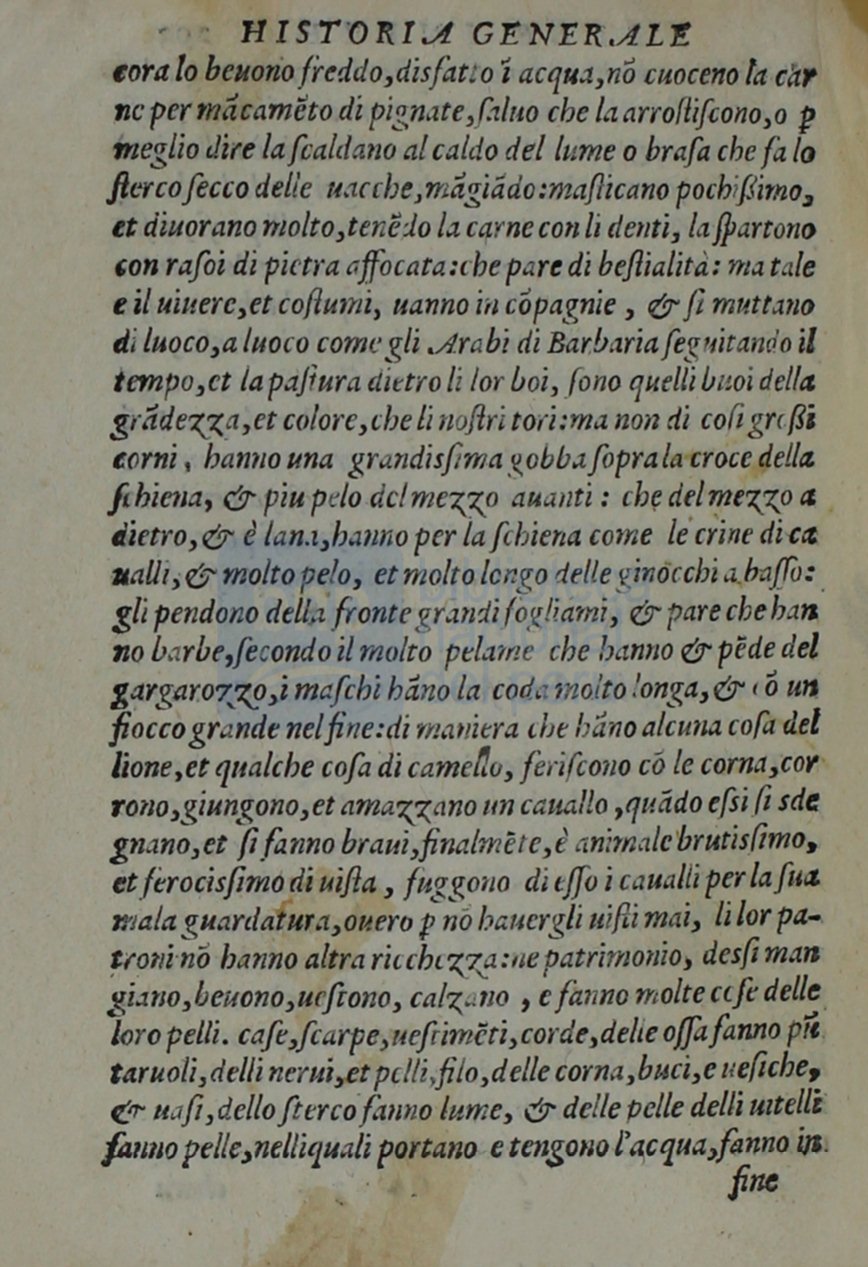 HISTORIA GENERALE
cora lo beuono freddo,disfatto ĩ acqua,nõ cuoceno la càr
ne per mãcamẽto di pignate,ſaluo che la arroſtiſcono,o ꝑ
meglio dire la ſcaldano al caldo del lume o braſa che fa lo
ſterco ſecco delle uacche,mãgiãdo:maſticano pochißimo,
et diuorano molto,tenẽdo la carne con li denti, la ſpartono
con raſoi di pietra affocata:che pare di beſtialità: ma tale
e il uiuere,et coſtumi, uanno in cõpagnie , & ſi muttano
di luoco,a luoco come gli Arabi di Barbaria ſeguitando il
tempo,et la paſtura dietro li lor boi, ſono quelli buoi della
grãdezza,et colore,che li noſtri tori:ma non di coſi großi
corni , hanno una grandisſima gobba ſopra la croce della
ſchiena, & piu pelo del mezzo auanti : che del mezzo a
dietro,& è lana,hanno per la ſchiena come le crine di ca
ualli,& molto pelo, et molto longo delle ginocchi a baſſo:
gli pendono della fronte grandi fogliami, & pare che han
no barbe,ſecondo il molto pelame che hanno & pẽde del
gargarozzo,i maſchi hãno la coda molto longa,& cõ un
fiocco grande nel fine:di maniera che hãno alcuna coſa del
lione,et qualche coſa di camello, feriſcono cõ le corna,cor
rono,giungono,et amazzano un cauallo ,quãdo eſsi ſi sde
gnano,et ſi fanno braui,finalmẽte,è animale brutisſimo,
et ferocisſimo di uiſta , fuggono di eſſo i caualli per la ſua
mala guardatura,ouero ꝑ nõ hauergli uiſti mai, li lor pa-
troni nõ hanno altra ricchezza:ne patrimonio, desſi man
giano,beuono,ueſtono, calzano , e fanno molte coſe delle
loro pelli. caſe,ſcarpe,ueſtimẽti,corde,delle oſſa fanno pũ
taruoli,delli nerui,et pelli,filo,delle corna,buci,e ueſiche,
& uaſi,dello ſterco fanno lume, & delle pelle delli uitelli
fanno pelle,nelliquali portano e tengono l'acqua,fanno in
fine